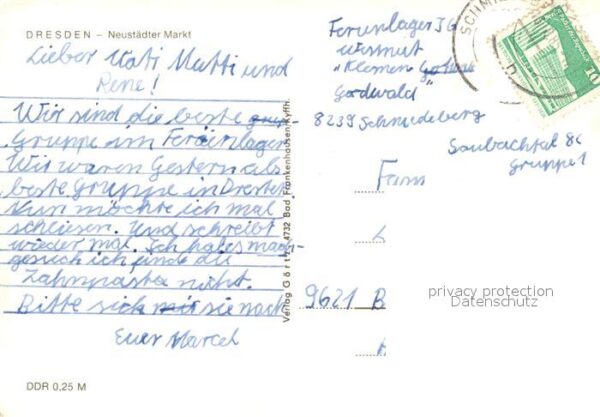 DRESDEN – Neustädter Markt
Lieber Vati Mutti und
Rene!
Wir sind die beste
Gruppe im Ferienlager
Wir waren Gestern als
beste Gruppe in Dresten
Nun möchte ich mal
schliesen. Und schreibt
wieder mal. Ich habe
gesuch ich finde die
Zahnpasta nicht.
Bitte sie nach
Euer Marcel
DDR 0,25 M
Verlag Görtz, 4732 Bad Frankenhausen/Kyffh.
Ferienlager IG
Wismut
"Klemen
Godwald"
8239 Schmiedeberg
Saubachtal 8c
Gruppe 1
Fam
9621 B
privacy protection
Datenschutz
SCHMIE
10